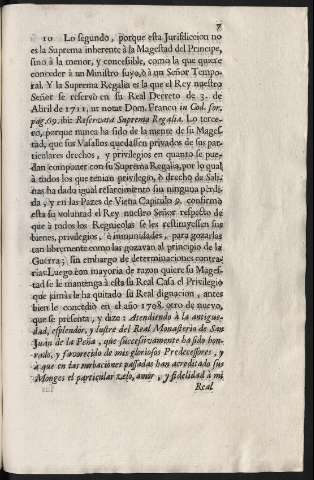 7
10 Lo segundo, porque esta Jurisdiccion no
es la Suprema inherente à la Magestad del Principe,
sino à la menor, y concessible, como la que quiere
conceder à un Ministro suyo, ò à un Señor Tempo-
ral. Y la Suprema Regalia es la que el Rey nuestro
Señor se reservò en su Real Decreto de 3. de
Abril de 1711. ut notat Dom. Franco in Cod. for.
pag. 69. ibi: Reservata Suprema Regalia. Lo terce-
ro, porque nunca ha sido de la mente de su Mages-
tad, que sus Vasallos quedassen privados de sus par-
ticulares drechos, y privilegios en quanto se pue-
dan componer con su Suprema Regalia, por lo qual
à todos los que tenian privilegio, ò drecho de Sali-
nas ha dado igual resarcimiento sin ninguna pérdi-
da, y en las Pazes de Viena Capitulo 9. confirmò
esta su voluntad el Rey nuestro Señor respecto de
que à todos los Regnicolas se les restituyessen sus
bienes, privilegios, è inmunidades, para gozarlas
tan libremente como las gozavan al principio de la
Guerra; sin embargo de determinaciones contra-
rias. Luego con mayoria de razon quiere su Mages-
tad se le mantenga à esta su Real Casa el Privilegio
que jamàs le ha quitado su Real dignacion, antes
bien le concediò en el año 1708. otro de nuevo,
que se presenta, y dize: Atendiendo à la antigue-
dad, esplendor, y lustre del Real Monasterio de San
Juan de la Peña, que successivamente ha sido hon-
rado, y favorecido de mis gloriosos Predecessores, y
à que en las turbaciones passadas han acreditado sus
Monges el particular zelo, amor, y fidelidad à mi
Real